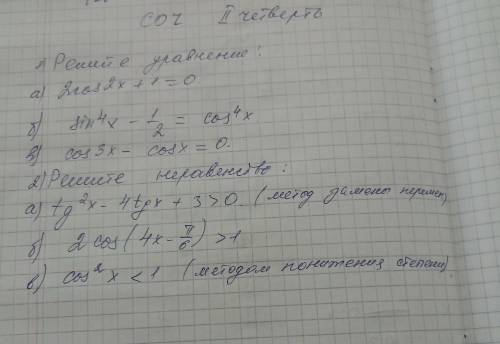 СОЧ II четверть
1) Решите уравнение:
а) 2cos2x + 1 = 0
б) sin⁴x - 1/2 = cos⁴x
в) cos3x - cosx = 0.
2) Решите неравенство:
а) tg²x - 4tgx + 3 > 0. (метод замены перемен)
б) 2cos(4x - π/6) > 1
в) cos²x < 1 (методом понижения степени)